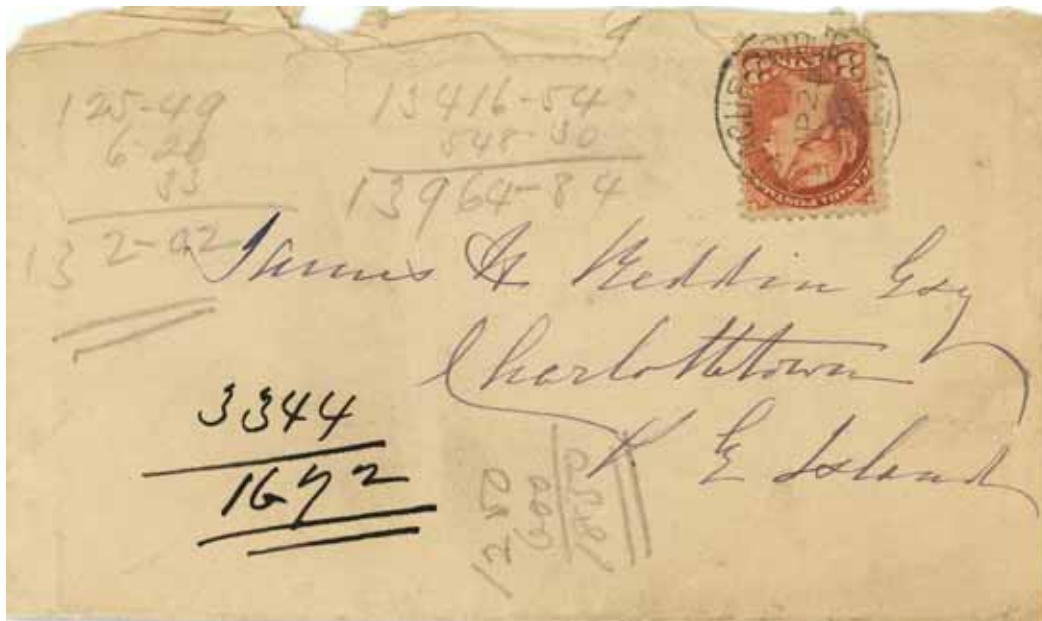 125-49
6-20
33
132-02
13416-54
548-30
13964-84
CANADA POSTAGE
James H Reddin Esq
Charlottetown
P E Island
3344
1672
1250
600
1850